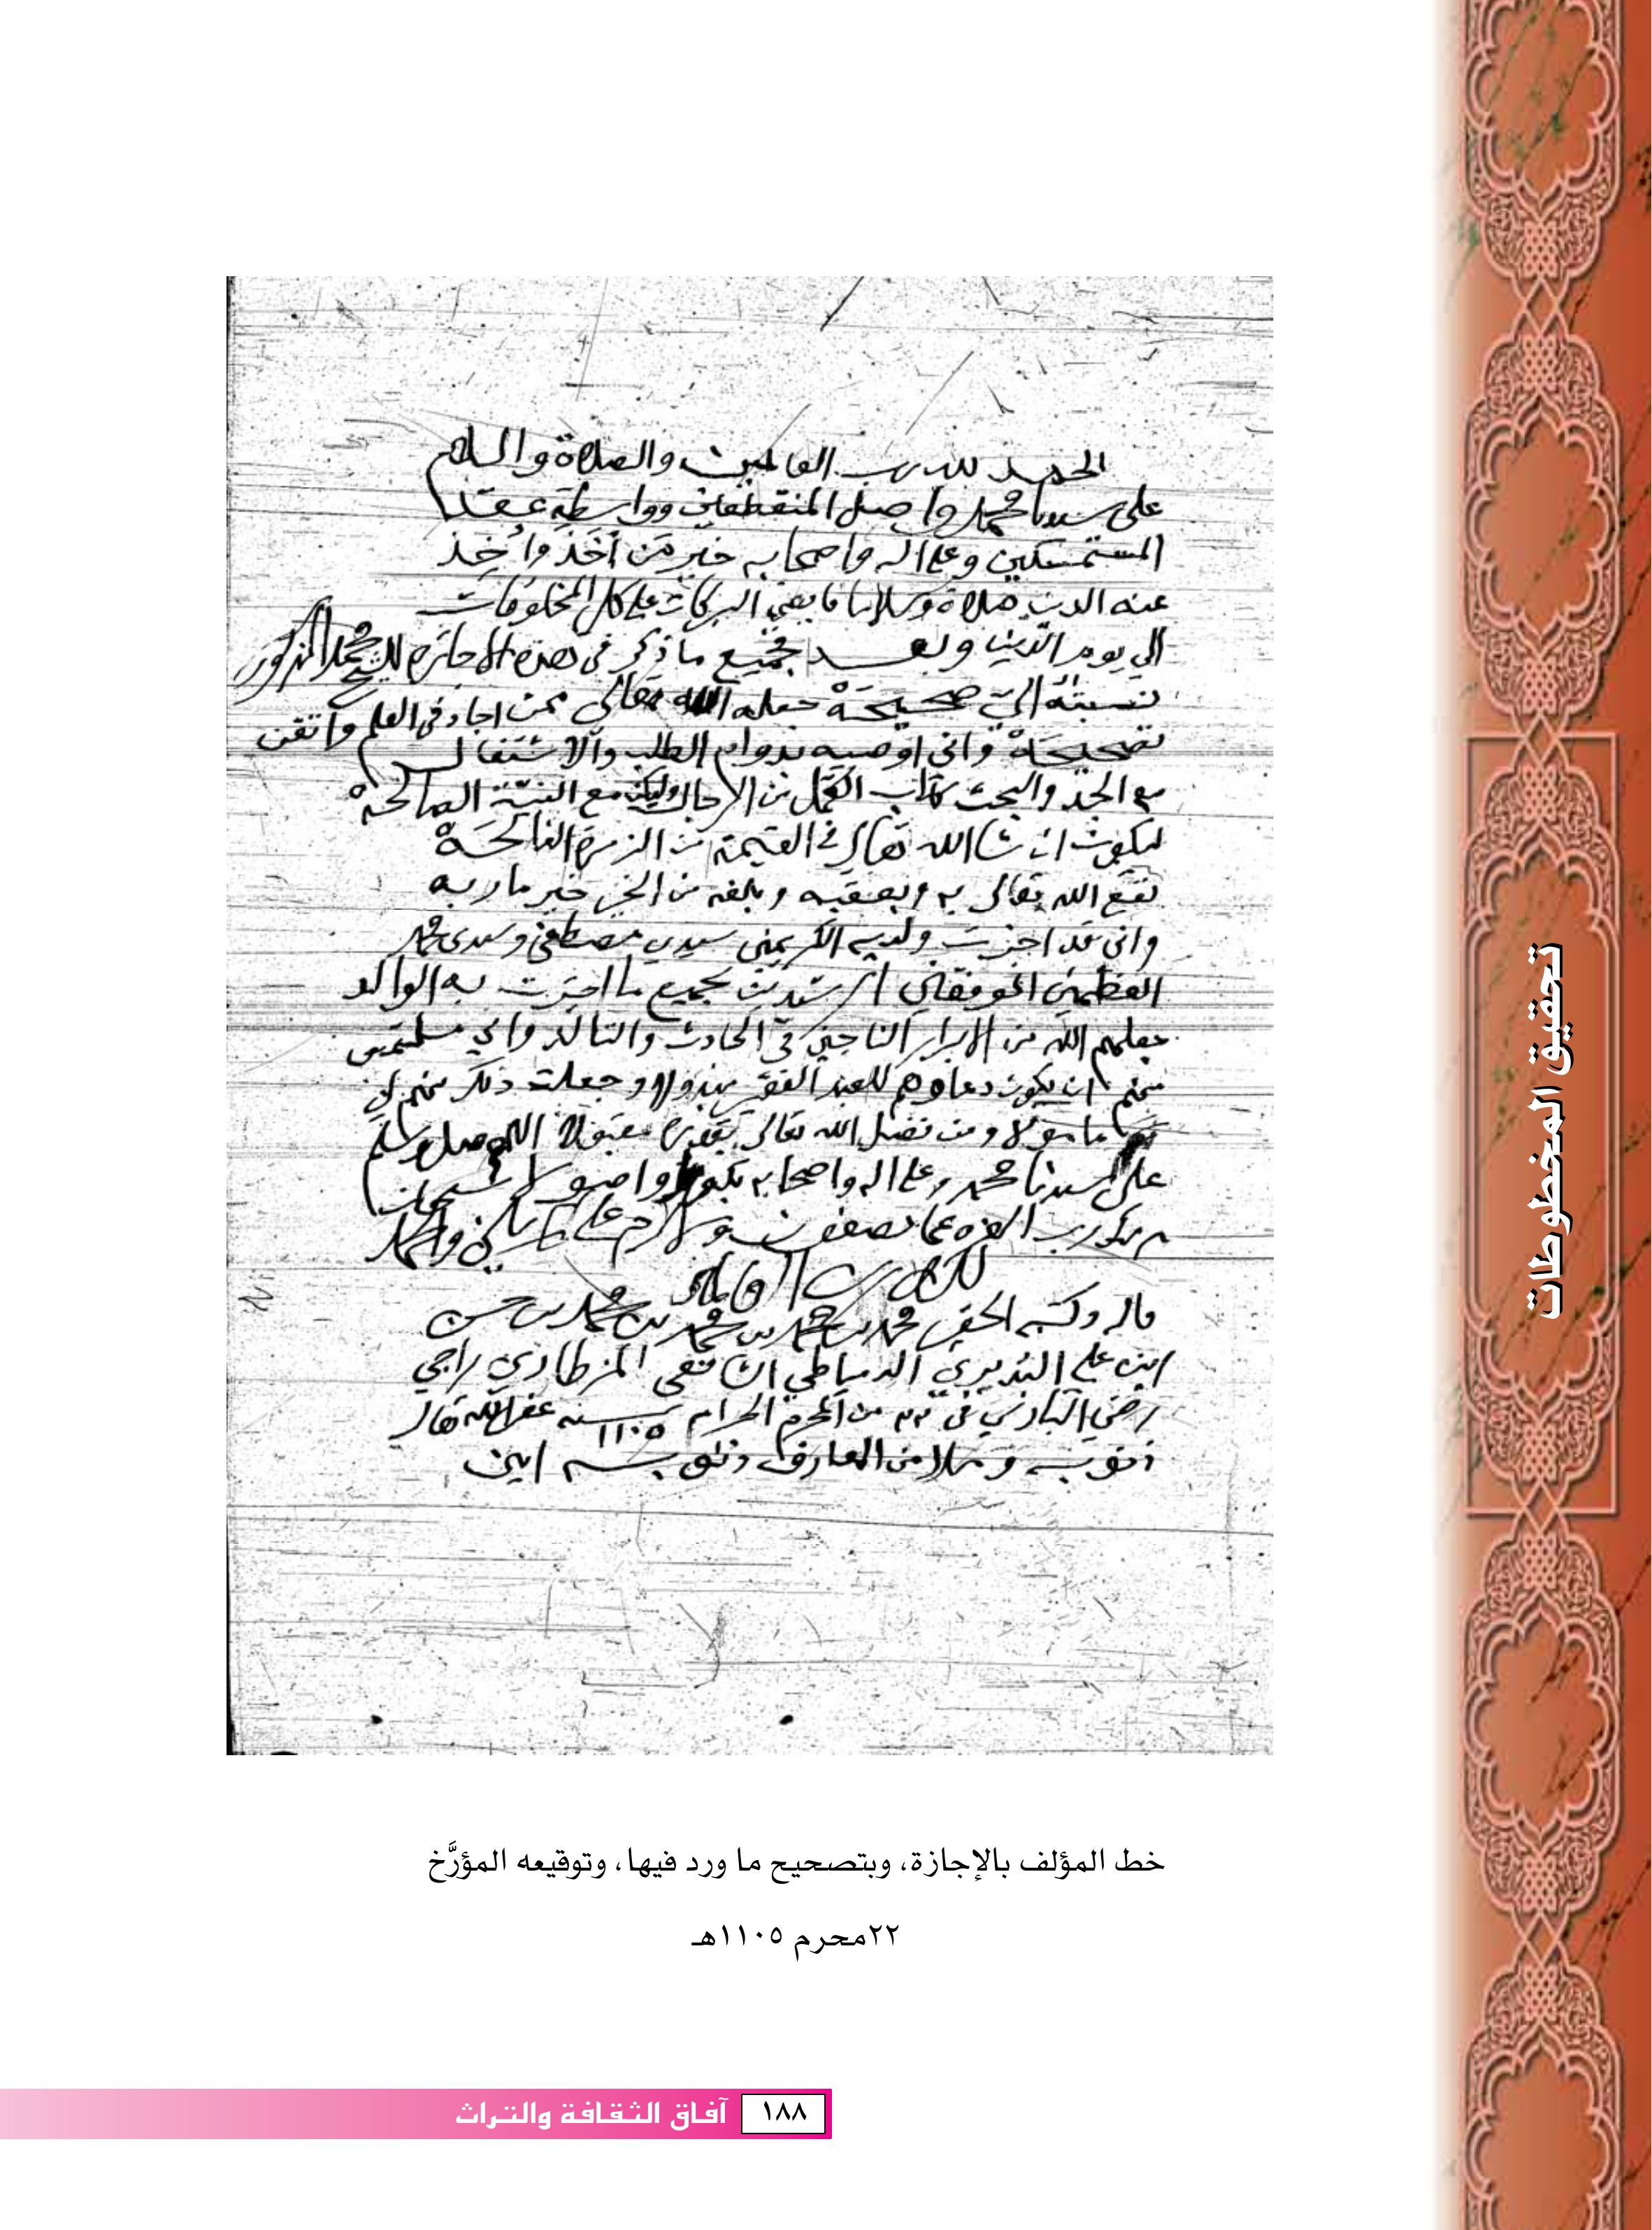 الحمد لله رب العالمين والصلاة والسلام
على سيدنا محمد واصل المنقطعين وواسطة عقد
المستمسكين وعلى اله واصحابه خير من أخذ وأُخِذ
عنه الدين صلاة وسلاما البركات على كل المخلوقات
الى يوم الدين وبعد فجميع ما ذكر في هذه الاجازة للشيخ محمد المذكور
نسبته اليّ صحيحة جعله الله تعالى ممن اجاد في العلم واتقن
تصحيحه واني اوصيه بدوام الطلب والاشتغال
مع الجد والبحث الكمل من الرجال وليكن مع النية الصالحة
ليكون ان شا الله تعالى في القيمة من الزمرة
نفع الله تعالى به وبعقبه وبلغه من الخير خير ماربه
واني قد اجزت ولديه الكريمين سيدي مصطفى وسيدي محمد
الموفقين بجميع ما اجزت به الوالد
جعلهم الله من الابرار الناجين في الحادث والتالد واني ملتمس
منهم ان يكون دعاوهم للعبد الفقير مبذولا وجعلت ذلك منهم لي
مامولا ومن فضل الله تعالى مقبولا اللهم صل وسلم
على سيدنا محمد وعلى اله واصحابه بكورا واصيلا سبحان
ربك رب العزة عما يصفون وسلام على المرسلين والحمد
لله رب العالمين
قاله وكتبه الحقير محمد بن محمد بن محمد بن محمد بن حسن
ابن علي البديري الدمياطي الشافعي راجي
رضى الباري في ٢٢ من المحرم الحرام سنة ١١٠٥ غفر الله تعالى
ذنوبه وملا من المعارف ذنوبه امين
خط المؤلف بالإجازة، وبتصحيح ما ورد فيها، وتوقيعه المؤرَّخ
٢٢محرم ١١٠٥هـ
تحقيق المخطوطات
١٨٨ آفاق الثقافة والتراث